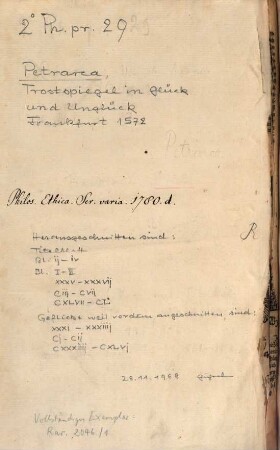 2° Ph. pr. 29
Petrarca,
Trostspiegel in Glück
und Unglück
Frankfurt 1572
Philos. Ethica. Ser. varia. 1780. d.
Herausgeschnitten sind:
R
Bl. ij - iv
Bl. I - II
XXXV - XXXVII
CIII - CVII
CXLVII - CL
Geflickt weil vordem angeschnitten, sind:
XXXI - XXXIIIj
Cj - Cij
CXXXIIj - CXLVj
25.11.1968
Vollständiges Exemplar:
Rar. 2046/1